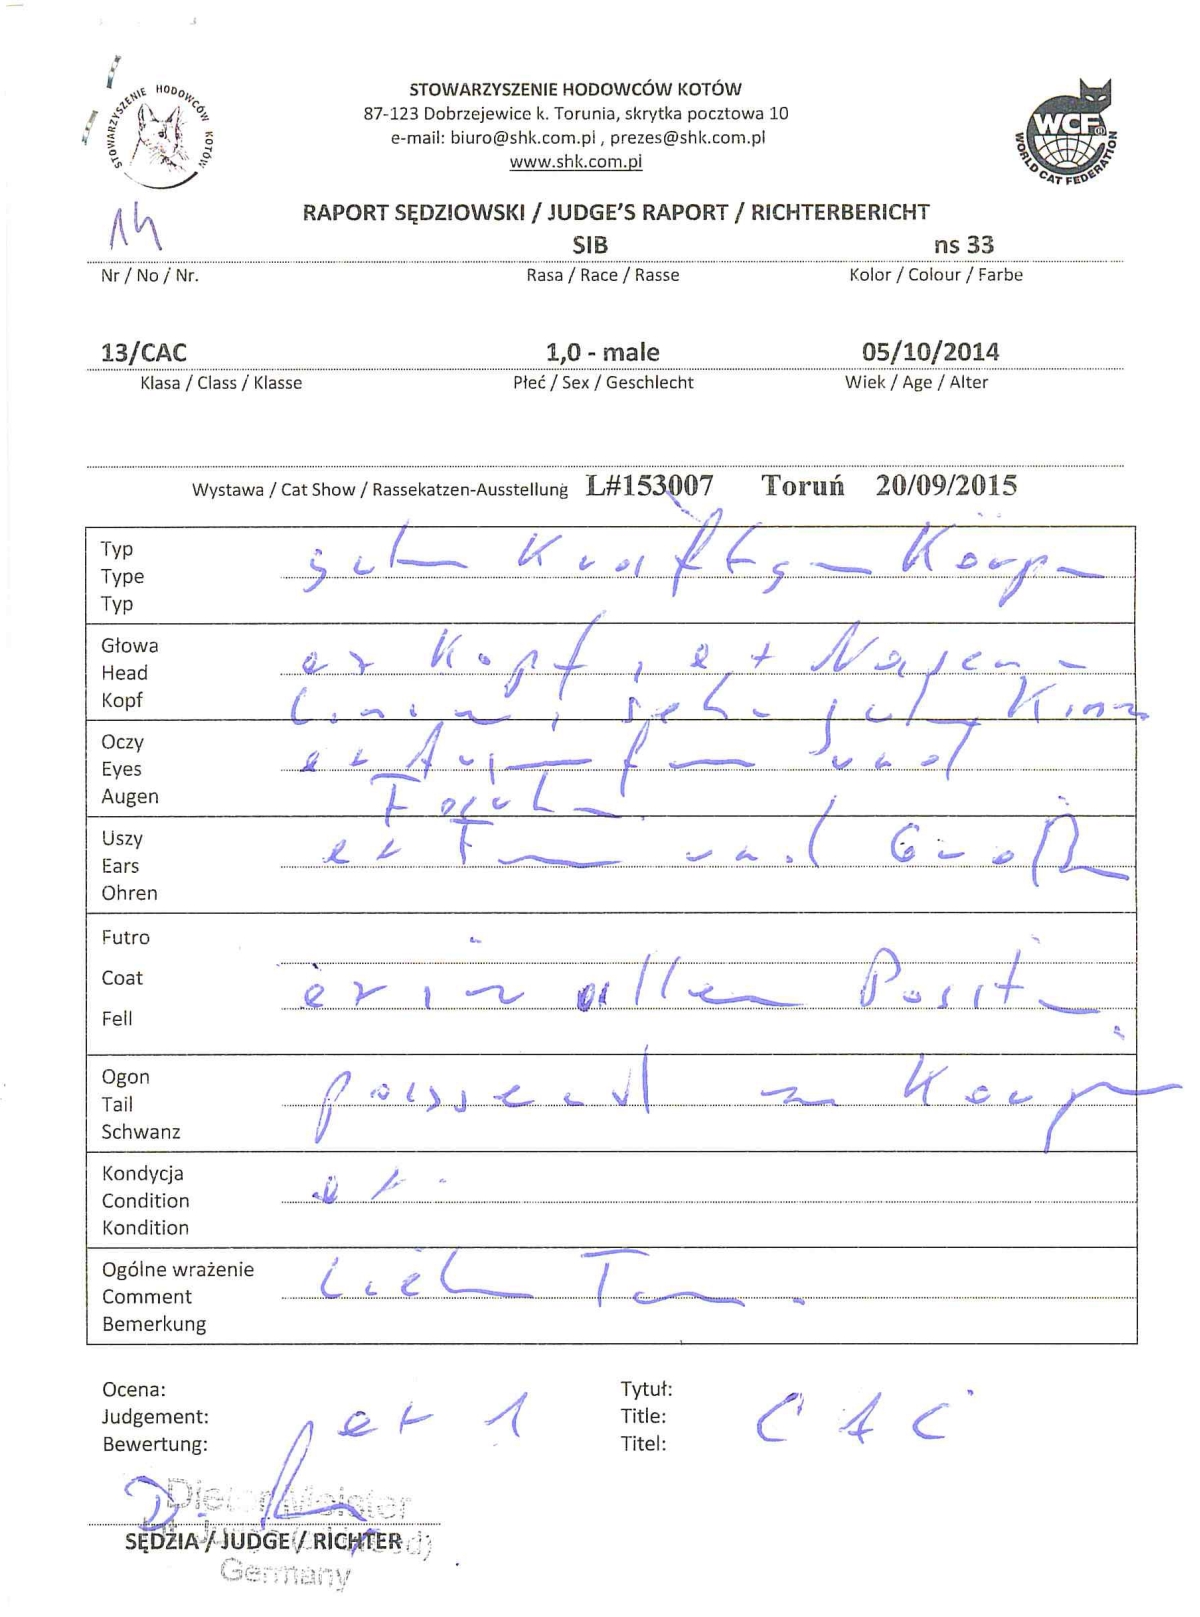 STOWARZYSZENIE HODOWCÓW KOTÓW
STOWARZYSZENIE HODOWCÓW KOTÓW
87-123 Dobrzejewice k. Torunia, skrytka pocztowa 10
e-mail: biuro@shk.com.pl , prezes@shk.com.pl
www.shk.com.pl
WCF®
WORLD CAT FEDERATION
RAPORT SĘDZIOWSKI / JUDGE'S RAPORT / RICHTERBERICHT
14 SIB ns 33
Nr / No / Nr. Rasa / Race / Rasse Kolor / Colour / Farbe
13/CAC 1,0 - male 05/10/2014
Klasa / Class / Klasse Płeć / Sex / Geschlecht Wiek / Age / Alter
Wystawa / Cat Show / Rassekatzen-Ausstellung L#153007 Toruń 20/09/2015
Typ
Type
Typ
Körper
Głowa
Head
Kopf
ex Kopf, ex Nasen-
sehr Kinn
Oczy
Eyes
Augen
ex Augenform und
Farbe
Uszy
Ears
Ohren
ex Form und Größe
Futro
Coat
Fell
ex in allen Posit.
Ogon
Tail
Schwanz
passend zum Körper
Kondycja
Condition
Kondition
ex.
Ogólne wrażenie
Comment
Bemerkung
Ocena: Tytuł:
Judgement: ex 1 Title: CAC
Bewertung: Titel:
Dieter Meister
SĘDZIA / JUDGE / RICHTER
Germany